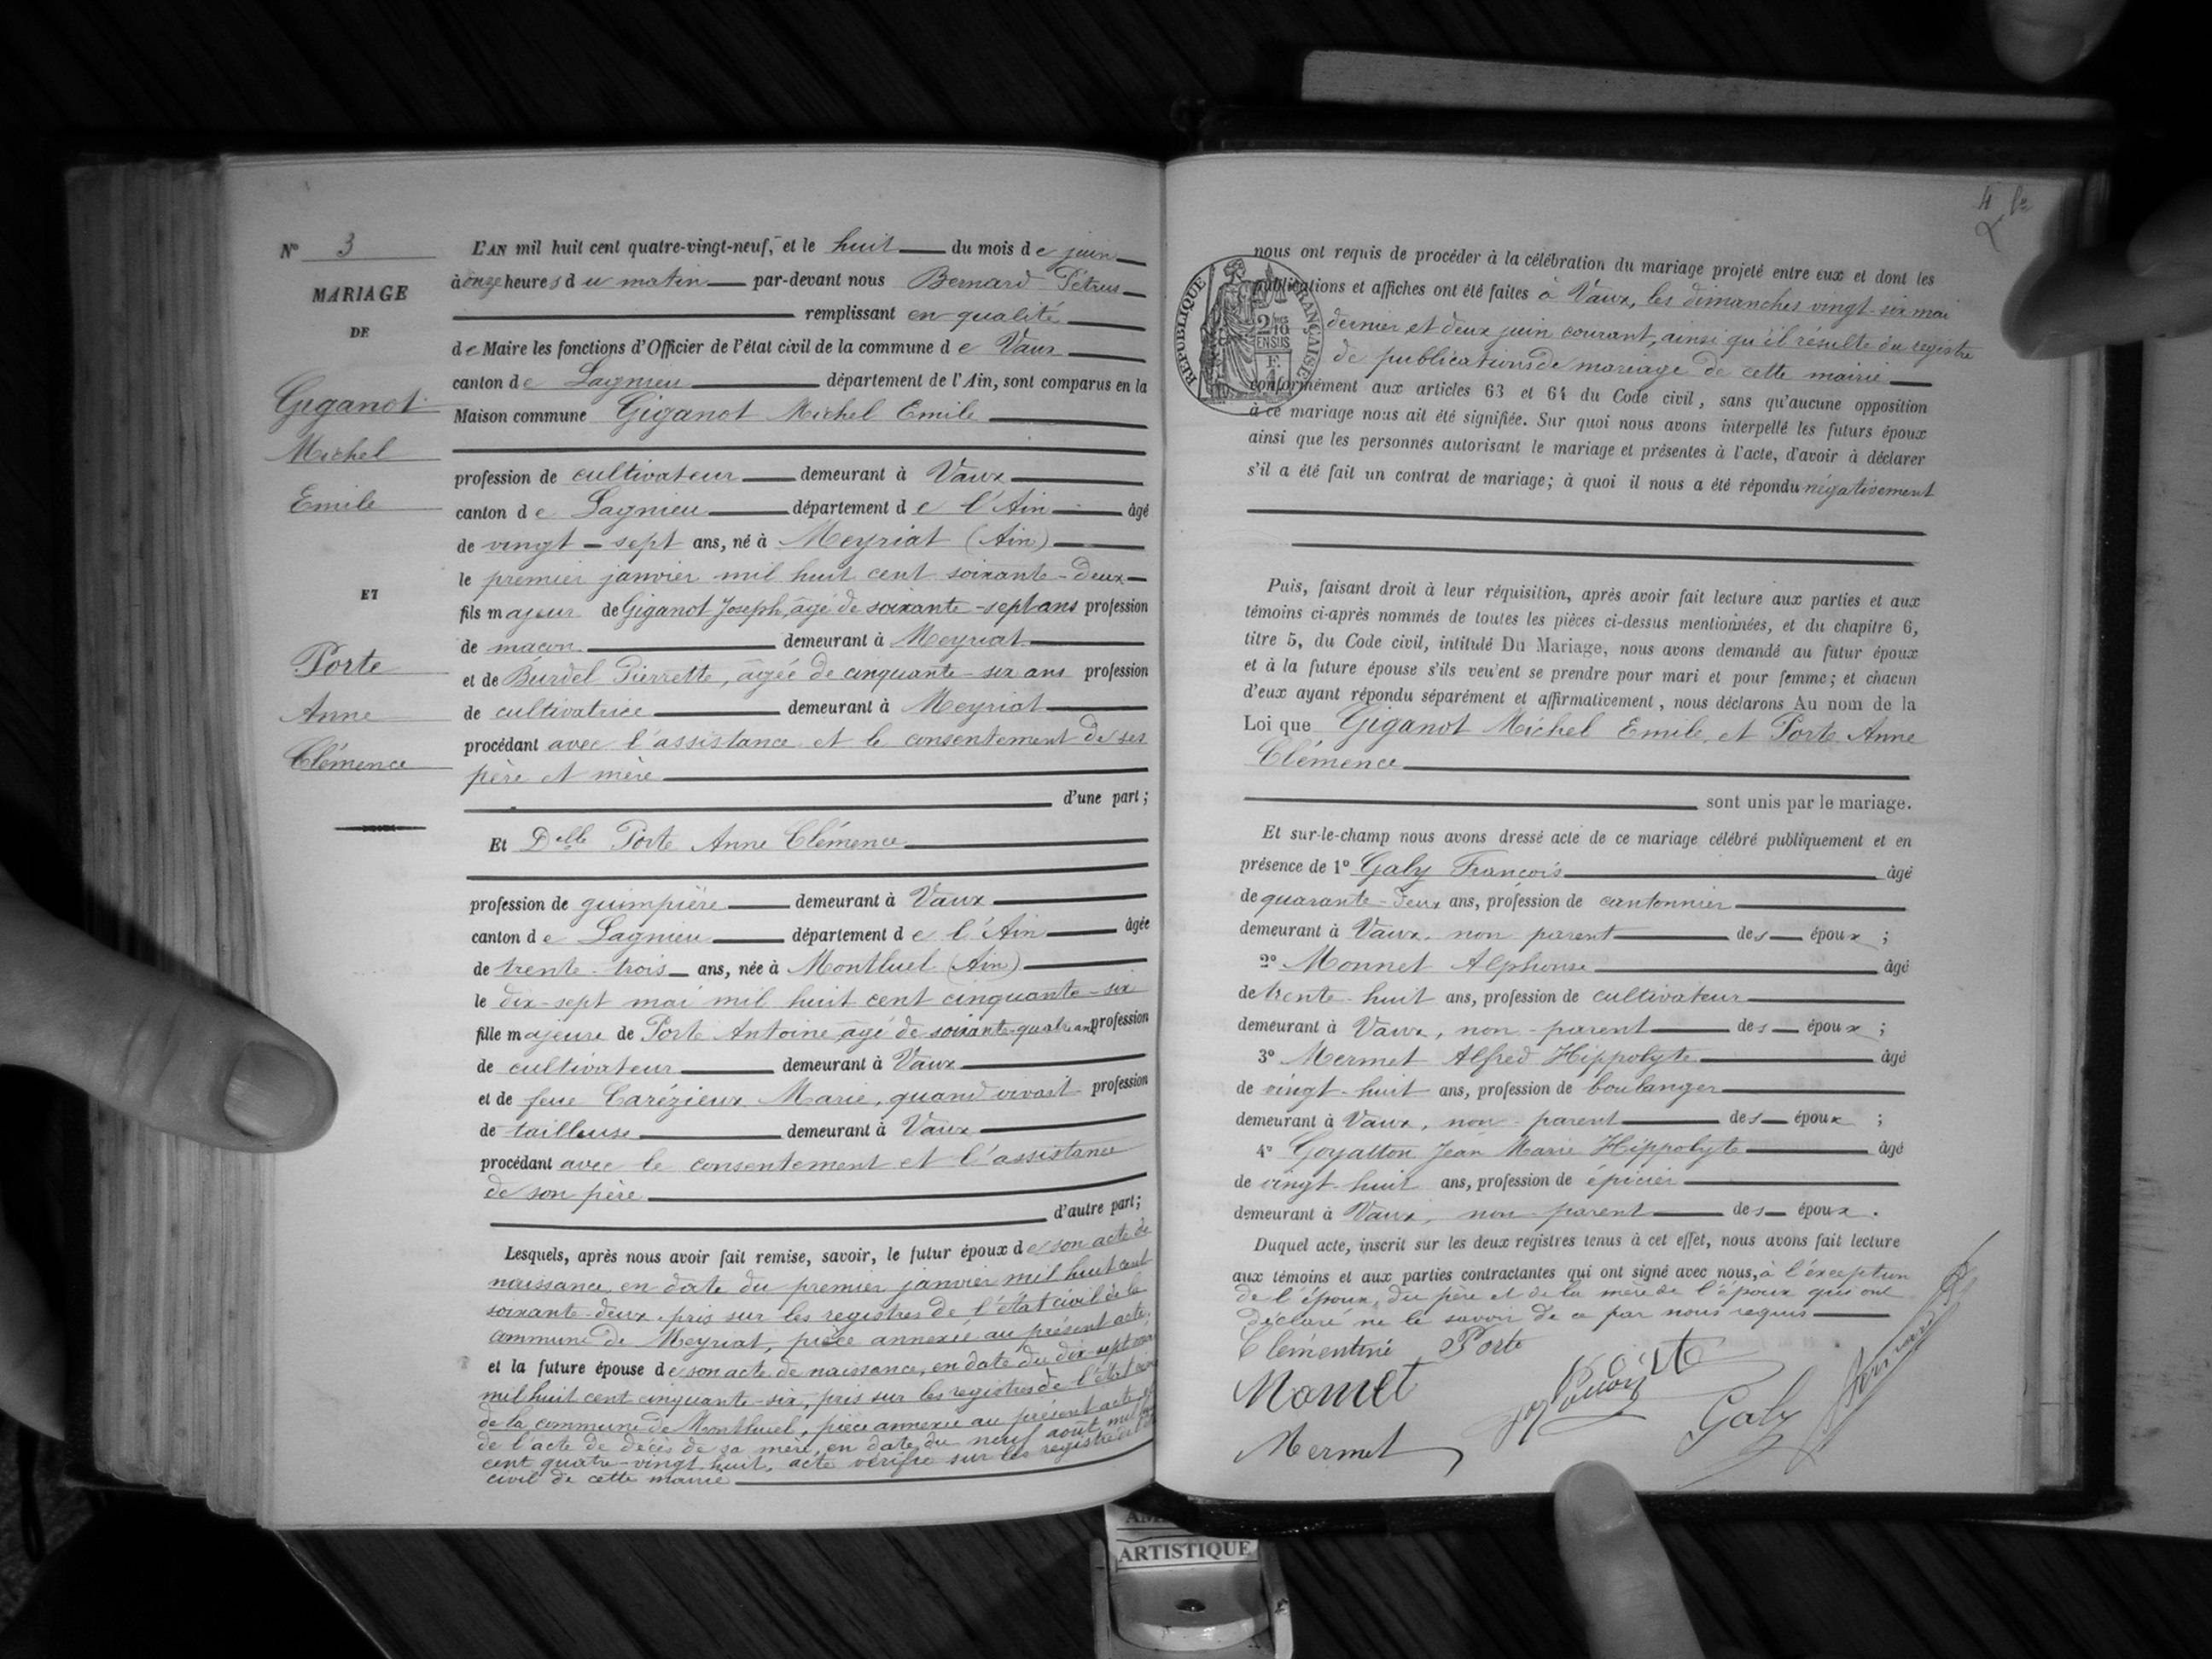 N° 3
MARIAGE
DE
Giganot
Michel
Emile
ET
Porte
Anne
Clémence
L'AN mil huit cent quatre-vingt-neuf, et le huit du mois de juin
à onze heures du matin par-devant nous Bernard Pétrus
remplissant en qualité
de Maire les fonctions d'Officier de l'état civil de la commune de Vaux
canton de Lagnieu département de l'Ain, sont comparus en la
Maison commune Giganot Michel Emile
profession de cultivateur demeurant à Vaux
canton de Lagnieu département de l'Ain âgé
de vingt-sept ans, né à Meyriat (Ain)
le premier janvier mil huit cent soixante-deux
fils majeur de Giganot Joseph, âgé de soixante-sept ans profession
de maçon demeurant à Meyriat
et de Burdel Pierrette, âgée de cinquante-six ans profession
de cultivatrice demeurant à Meyriat
procédant avec l'assistance et le consentement de ses
père et mère
d'une part;
Et Delle Porte Anne Clémence
profession de guimpière demeurant à Vaux
canton de Lagnieu département de l'Ain âgée
de trente-trois ans, née à Montluel (Ain)
le dix-sept mai mil huit cent cinquante-six
fille majeure de Porte Antoine âgé de soixante-quatre ans profession
de cultivateur demeurant à Vaux
et de feue Carézieux Marie, quand vivait profession
de tailleuse demeurant à Vaux
procédant avec le consentement et l'assistance
de son père
d'autre part;
Lesquels, après nous avoir fait remise, savoir, le futur époux de son acte de
naissance en date du premier janvier mil huit cent
soixante-deux, pris sur les registres de l'état civil de la
commune de Meyriat, pièce annexée au présent acte;
et la future épouse de son acte de naissance, en date du dix-sept mai
mil huit cent cinquante-six, pris sur les registres de l'état civil
de la commune de Montluel, pièce annexée au présent acte et
de l'acte de décès de sa mère, en date du neuf août mil huit
cent quatre-vingt-huit, acte vérifié sur les registres de l'état
civil de cette mairie
4
RÉPUBLIQUE FRANÇAISE
2/10
EN SUS
nous ont requis de procéder à la célébration du mariage projeté entre eux et dont les
publications et affiches ont été faites à Vaux, les dimanches vingt-six mai
dernier et deux juin courant, ainsi qu'il résulte du registre
de publications de mariage de cette mairie
conformément aux articles 63 et 64 du Code civil, sans qu'aucune opposition
à ce mariage nous ait été signifiée. Sur quoi nous avons interpellé les futurs époux
ainsi que les personnes autorisant le mariage et présentes à l'acte, d'avoir à déclarer
s'il a été fait un contrat de mariage; à quoi il nous a été répondu négativement
Puis, faisant droit à leur réquisition, après avoir fait lecture aux parties et aux
témoins ci-après nommés de toutes les pièces ci-dessus mentionnées, et du chapitre 6,
titre 5, du Code civil, intitulé Du Mariage, nous avons demandé au futur époux
et à la future épouse s'ils veulent se prendre pour mari et pour femme; et chacun
d'eux ayant répondu séparément et affirmativement, nous déclarons Au nom de la
Loi que Giganot Michel Emile et Porte Anne
Clémence
sont unis par le mariage.
Et sur-le-champ nous avons dressé acte de ce mariage célébré publiquement et en
présence de 1° Galy François âgé
de quarante-deux ans, profession de cantonnier
demeurant à Vaux, non parent des époux;
2° Monnet Alphonse âgé
de trente-huit ans, profession de cultivateur
demeurant à Vaux, non-parent des époux;
3° Mermet Alfred Hippolyte âgé
de vingt-huit ans, profession de boulanger
demeurant à Vaux, non-parent des époux;
4° Goyatton Jean Marie Hippolyte âgé
de vingt-huit ans, profession de épicier
demeurant à Vaux, non-parent des époux.
Duquel acte, inscrit sur les deux registres tenus à cet effet, nous avons fait lecture
aux témoins et aux parties contractantes qui ont signé avec nous, à l'exception
de l'époux, du père et de la mère de l'époux qui ont
déclaré ne le savoir de ce par nous requis
Clémentine Porte
Monnet
Porte
Galy
Bernard
Mermet
ARTISTIQUE